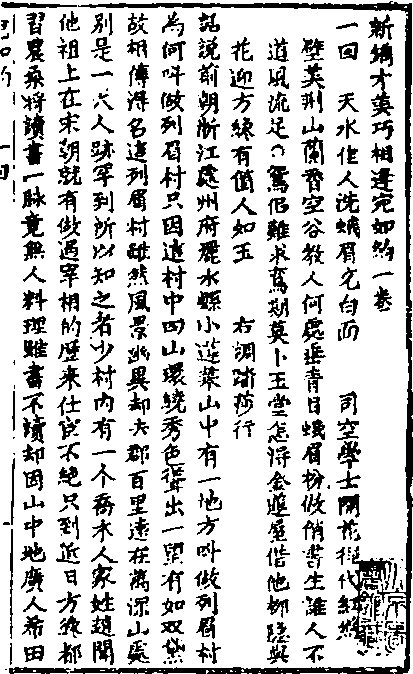 新鐫才美巧相逢宛如約一卷
一回 天水佳人洗蛾眉充白面 司空學士開花徑代紅絲
璧美荆山蘭香空谷教人何處垂青目蛾眉扮做俏書生誰人不
道風流足○鴛侶難求鴦期莫卜玉堂怎得金屋借他柳隱與
花迎方纔有箇人如玉 右調踏莎行
話說前朝浙江處州府麗水縣小蓬萊山中有一地方叫做列眉村
為何叫做列眉村只因這村中四山環繞秀色聳出一望有如双黛
故相傳得名這列眉村雖然風景幽異却去郡百里遠在萬深山處
別是一人跡罕到所以知之者少村內有一个喬木人家姓趙聞
他祖上在宋朝就有做過宰相的歷來仕宦不絕只到近日方纔都
習農桑將讀書一脉竟無人料理雖書不讀却因山中地廣人希田